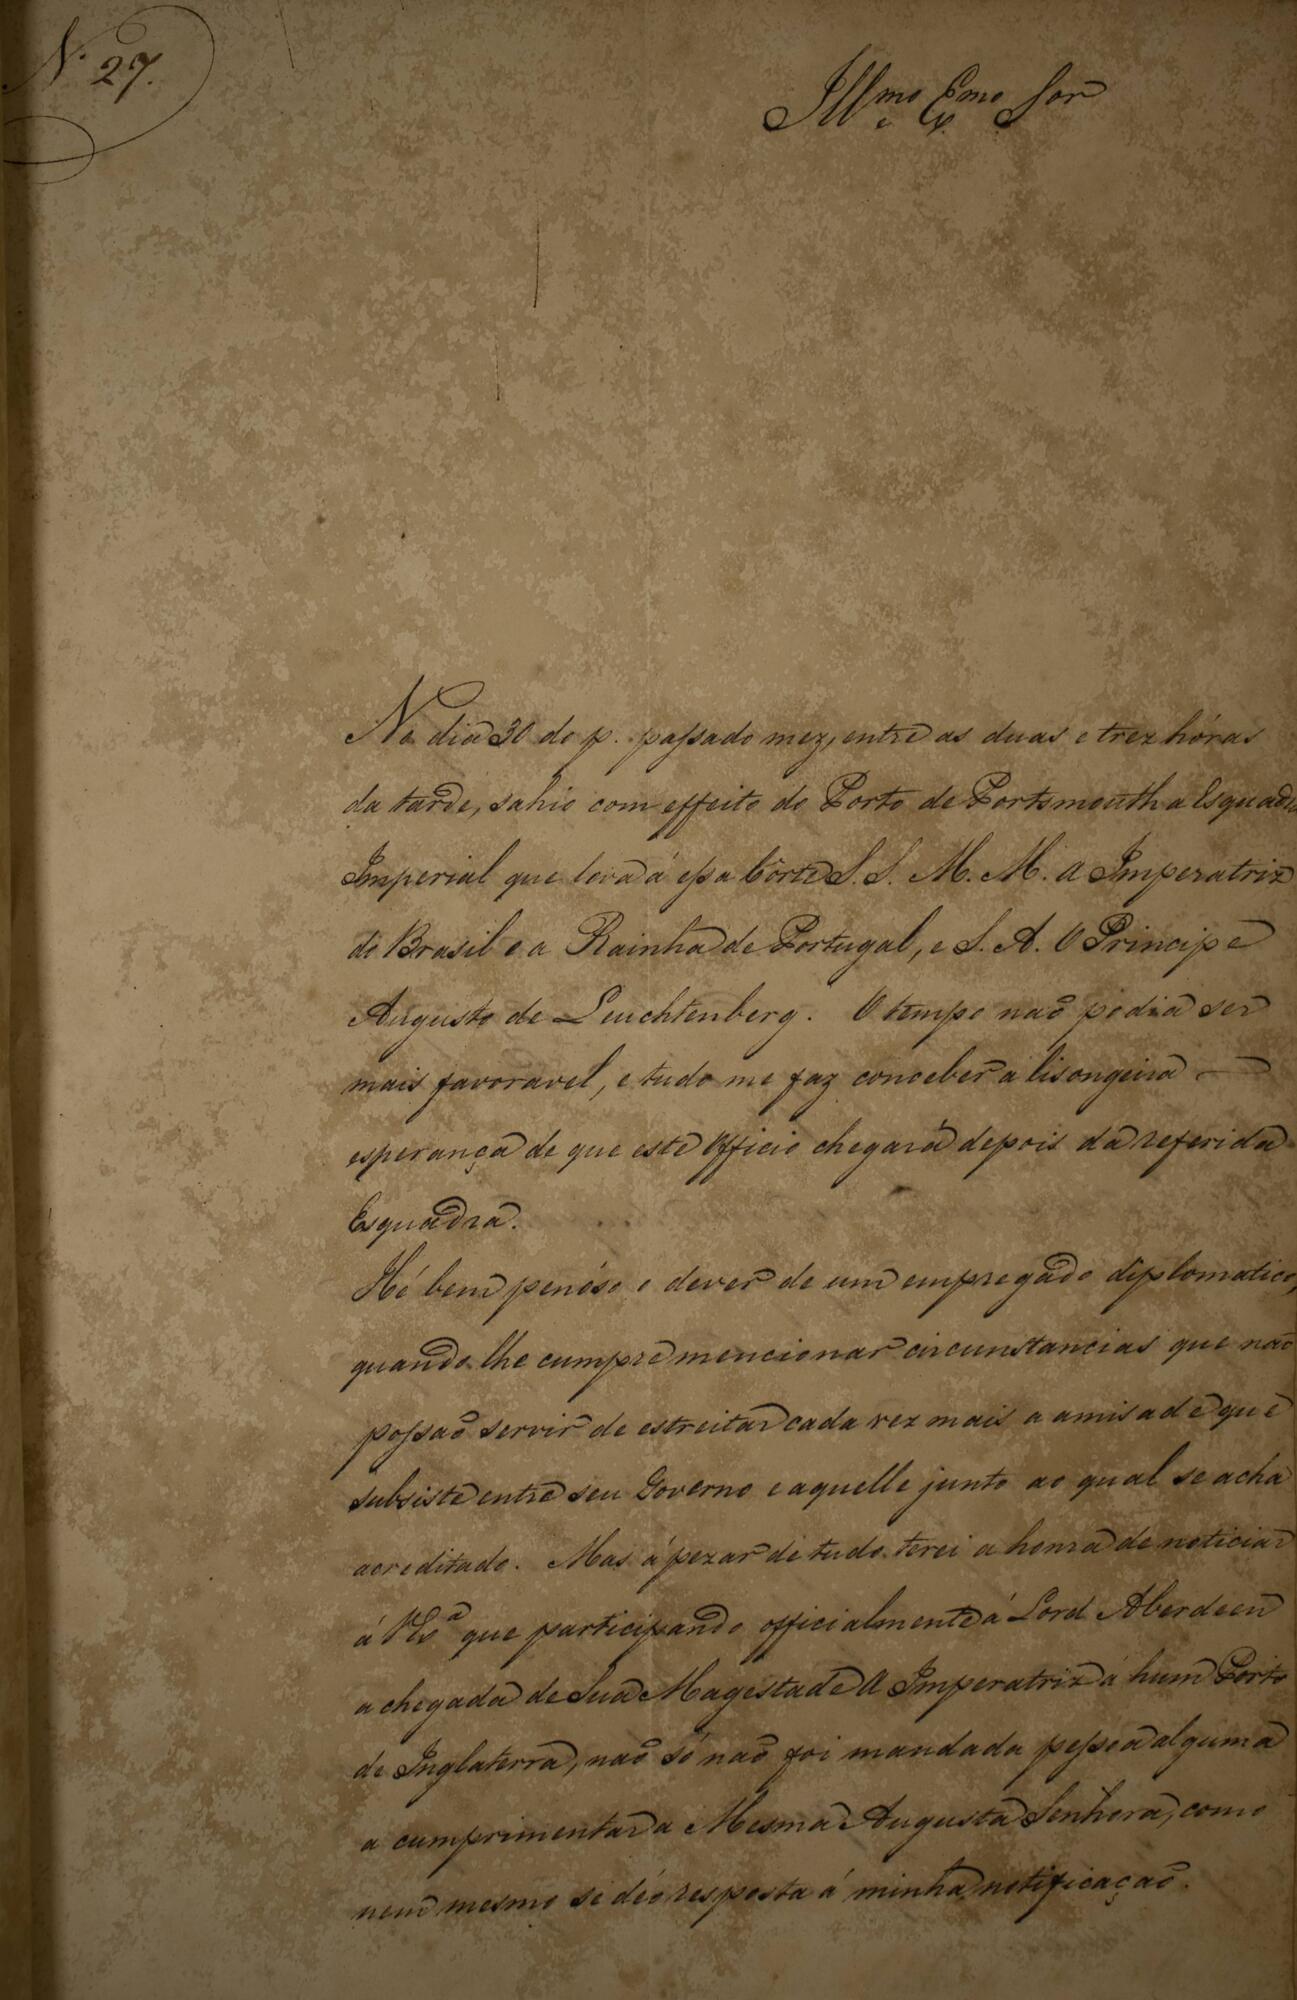 N. 27.
Ill.mo e Ex.mo Sor
No dia 30 do p. passado mez, entre as duas e trez hóras
da tarde, sahio com effeito do Porto de Portsmouth a Esquadra
Imperial que leva á essa Côrte S. S. M. M. A Imperatriz
do Brasil e a Rainha de Portugal, e S. A. O Principe
Augusto de Leuchtenberg. O tempo naõ podia ser
mais favoravel, e tudo me faz conceber a lisongeira —
esperança de que este Officio chegará depois da referida
Esquadra.
Hé bem penóso o dever de um empregado diplomatico,
quando lhe cumpre mencionar circunstancias que naõ
possaõ servir de estreitar cada vez mais a amisade que
subsiste entre seu Governo e aquelle junto ao qual se acha
acreditado. Mas á pezar de tudo terei a honra de noticiar
á V Exa que participando officialmente á Lord Aberdeen
a chegada de Sua Magestade A Imperatriz á hum Porto
de Inglaterra, naõ só naõ foi mandada pessoa alguma
a cumprimentar a Mesma Augusta Senhora, como
nem mesmo se déo resposta á minha notificaçaõ.